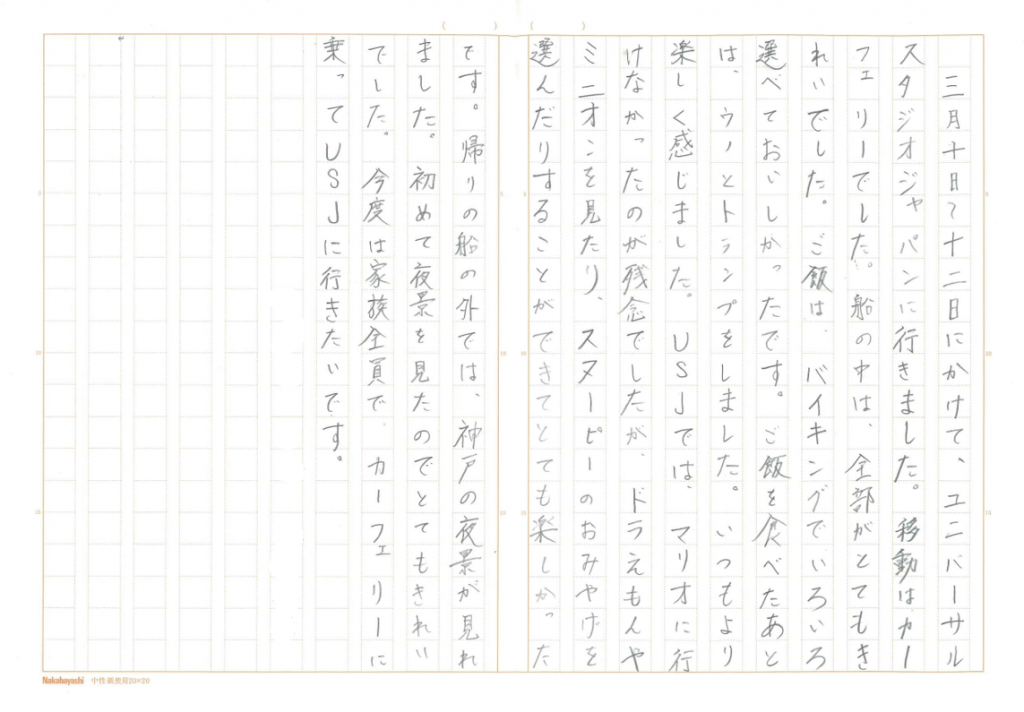 三月十日〜十二日にかけて、ユニバーサル
スタジオジャパンに行きました。移動はカー
フェリーでした。船の中は、全部がとてもき
れいでした。ご飯は、バイキングでいろいろ
選べておいしかったです。ご飯を食べたあと
は、ウノとトランプをしました。いつもより
楽しく感じました。USJでは、マリオに行
けなかったのが残念でしたが、ドラえもんや
ミニオンを見たり、スヌーピーのおみやげを
選んだりすることができてとても楽しかった
です。帰りの船の外では、神戸の夜景が見れ
ました。初めて夜景を見たのでとてもきれい
でした。今度は家族全員で、カーフェリーに
乗ってUSJに行きたいです。
Nakabayashi 中性紙使用20×20
5
10
15
5
10
15
5
10
15
5
10
15